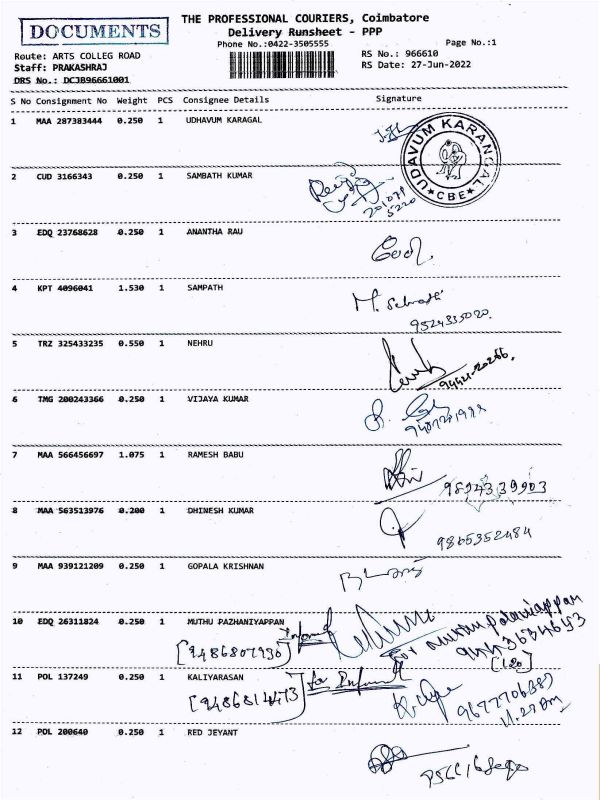 DOCUMENTS
THE PROFESSIONAL COURIERS, Coimbatore
Delivery Runsheet - PPP
Phone No.:0422-3505555
Page No.:1
Route: ARTS COLLEG ROAD
Staff: PRAKASHRAJ
DRS No.: DCJB96661001
RS No.: 966610
RS Date: 27-Jun-2022
S No Consignment No Weight PCS Consignee Details Signature
1 MAA 287383444 0.250 1 UDHAVUM KARAGAL
UDAVUM KARANGAL
CBE
2 CUD 3166343 0.250 1 SAMBATH KUMAR
3 EDQ 23768628 0.250 1 ANANTHA RAU
4 KPT 4096041 1.530 1 SAMPATH
9524335020.
5 TRZ 325433235 0.550 1 NEHRU
6 TMG 200243366 0.250 1 VIJAYA KUMAR
7 MAA 566456697 1.075 1 RAMESH BABU
9894339903
8 MAA 563513976 0.200 1 DHINESH KUMAR
9865352484
9 MAA 939121209 0.250 1 GOPALA KRISHNAN
10 EDQ 26311824 0.250 1 MUTHU PAZHANIYAPPAN
[9486807930]
11 POL 137249 0.250 1 KALIYARASAN
[9486814473]
12 POL 200640 0.250 1 RED JEYANT